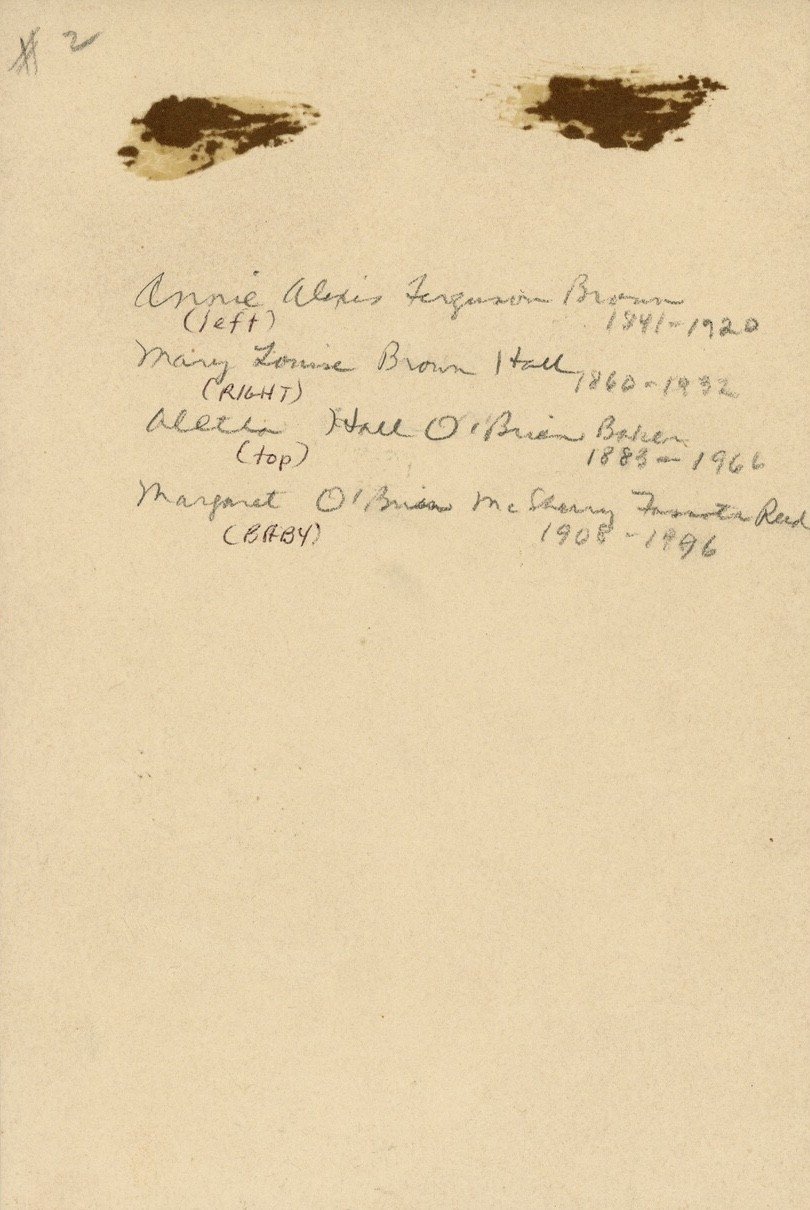 # 2
Annie Alexis Ferguson Brown
(left) 1841-1920
Mary Louise Brown Hall
(RIGHT) 1860-1932
Aletha Hall O'Brien Baker
(top) 1883-1966
Margaret O'Brien McSherry Reed
(BABY) 1908-1996